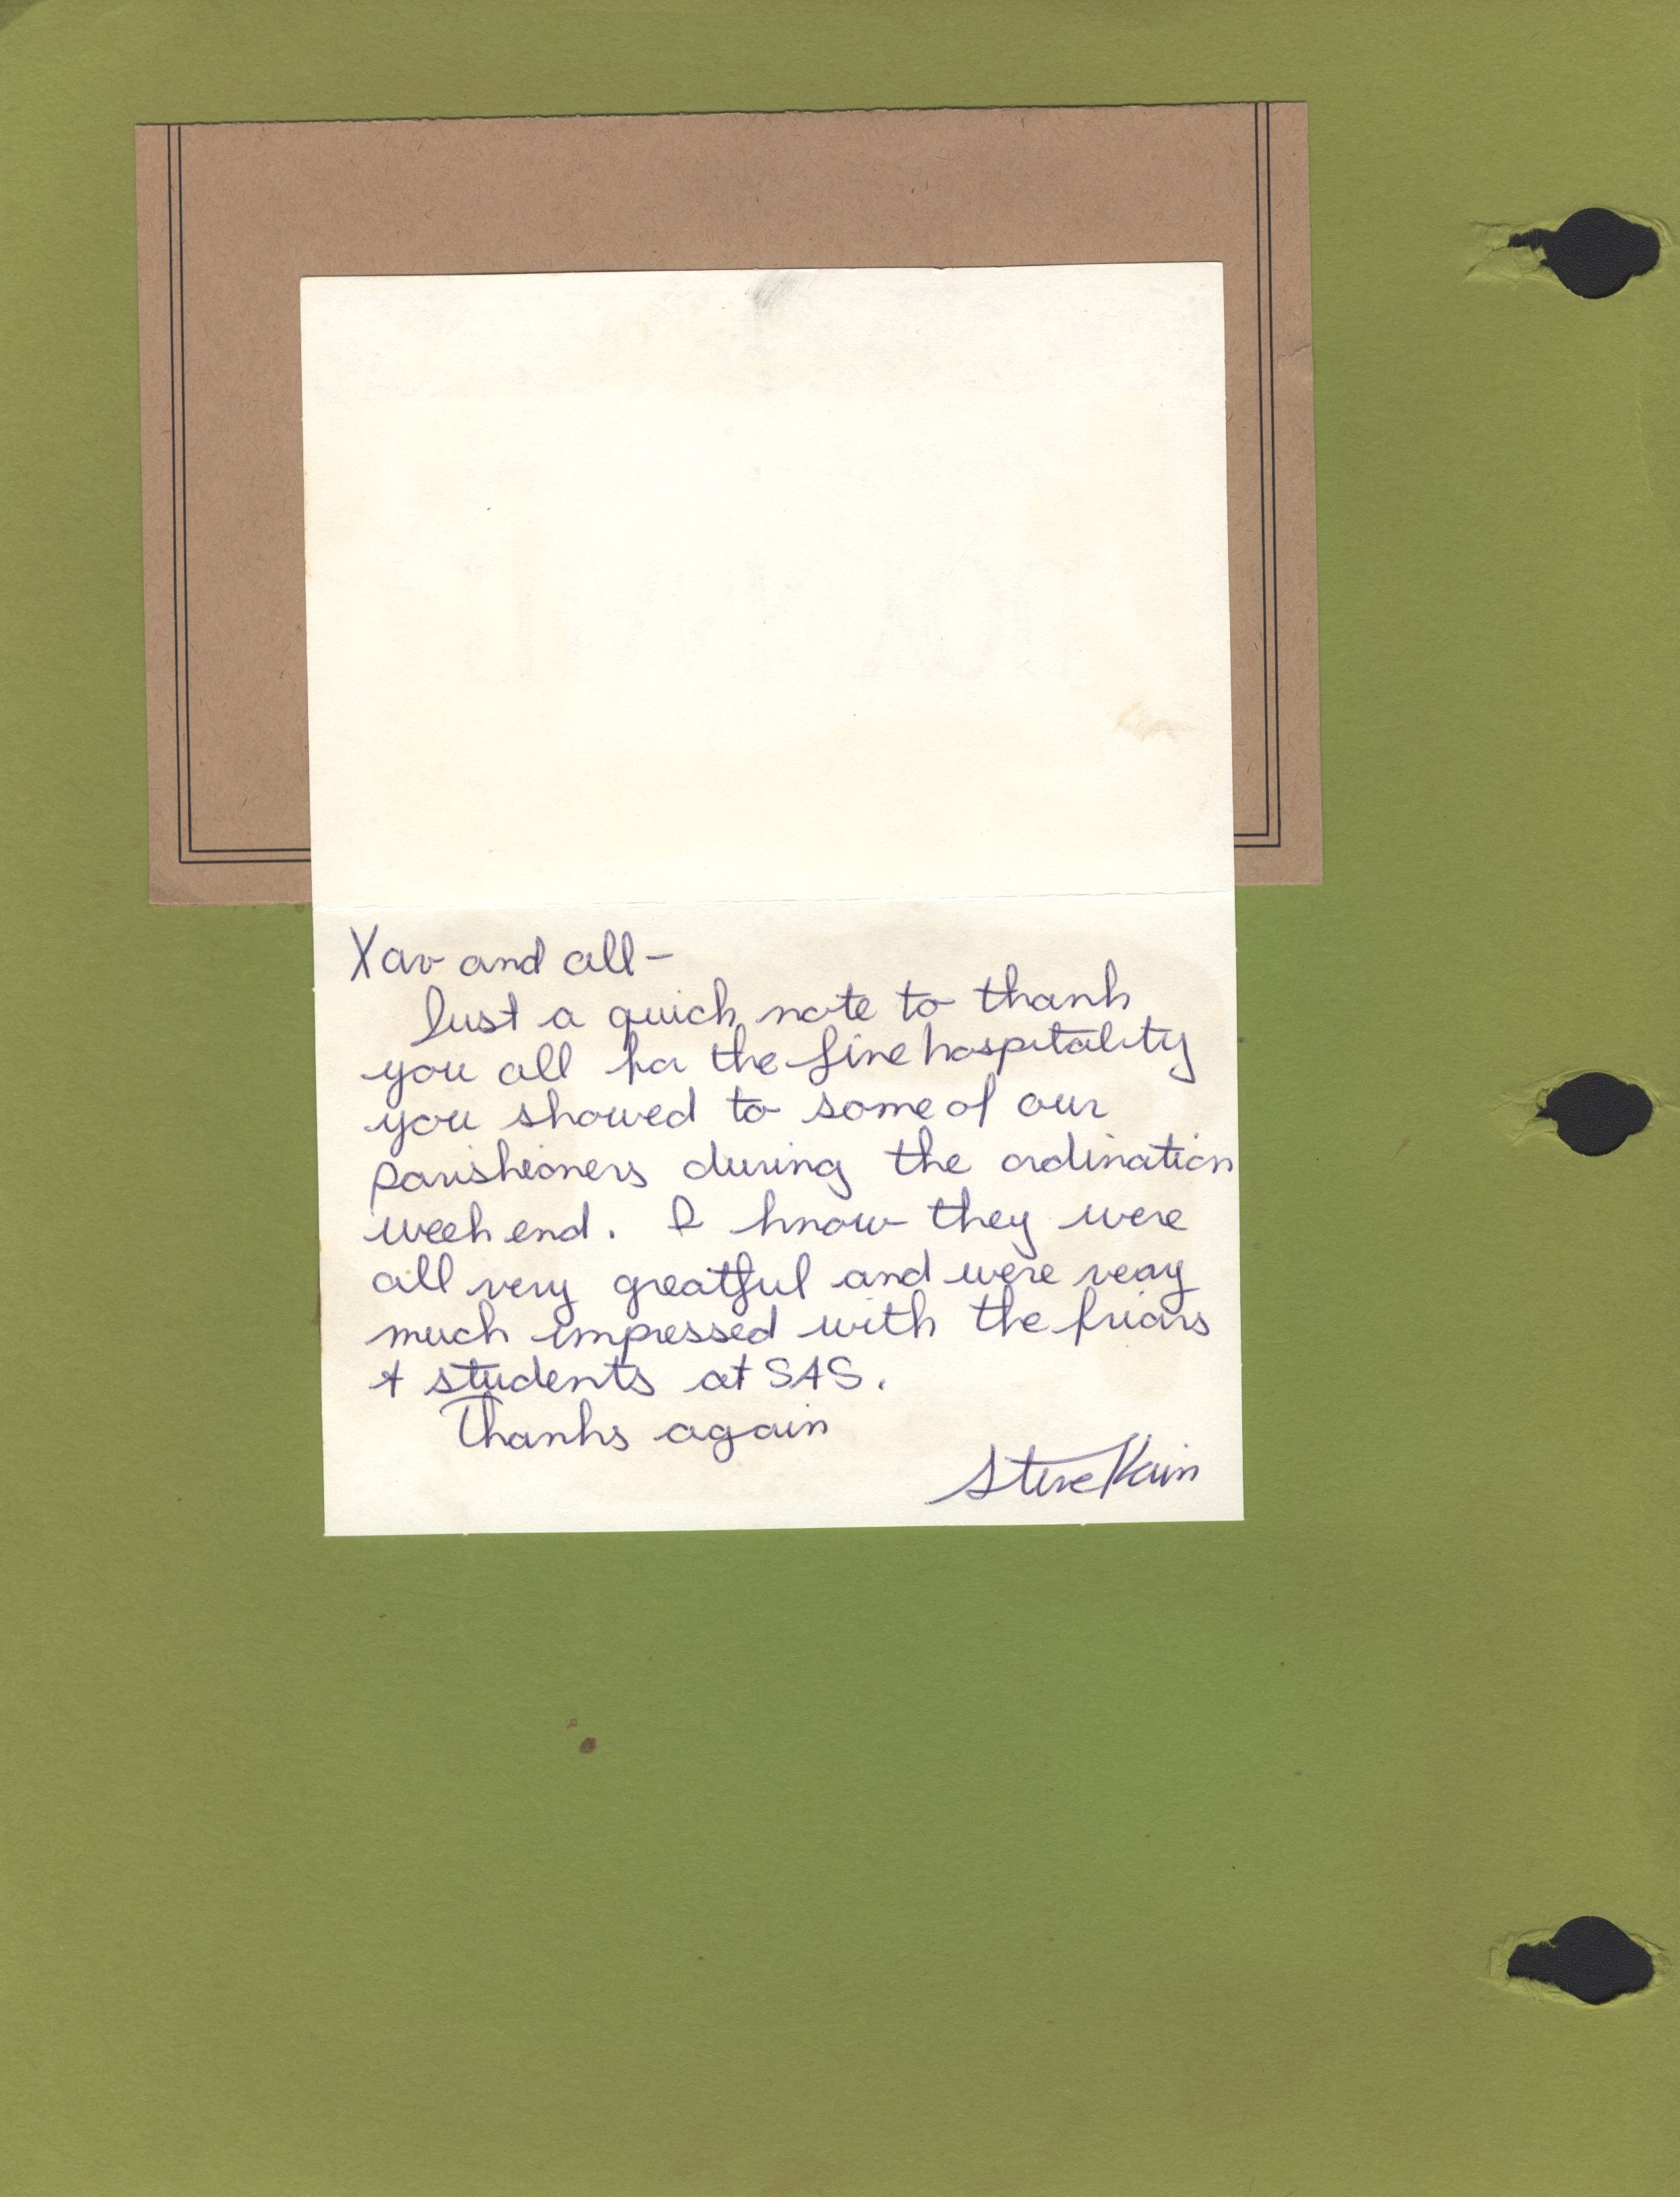 Xav and all—
Just a quick note to thank
you all for the fine hospitality
you showed to some of our
parishioners during the ordination
weekend. I know they were
all very greatful and were very
much impressed with the friars
& students at SAS.
Thanks again
Steve Kain